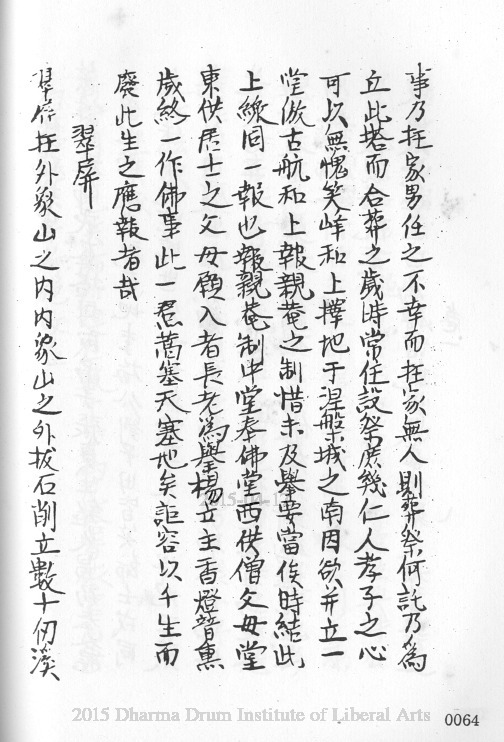 事乃在家男任之不幸而在家無人則葬祭何託乃為
立此塔而合葬之歲時常住設祭庶幾仁人孝子之心
可以無愧笑峰和上擇地于涅槃城之南因欲并立一
堂倣古航和上報親菴之制惜未及舉要當俟時結此
上緣同一報也報親菴制中堂奉佛堂西供僧父母堂
東供居士之父母願入者長老為舉楊立主香燈普熏
歲終一作佛事此一念萬塞天塞地矣詎容以千生而
廢此生之應報者哉
翠屏
翠屏在外象山之內內象山之外拔石削立數十仞溪
2015-04-1
2015 Dharma Drum Institute of Liberal Arts
0064